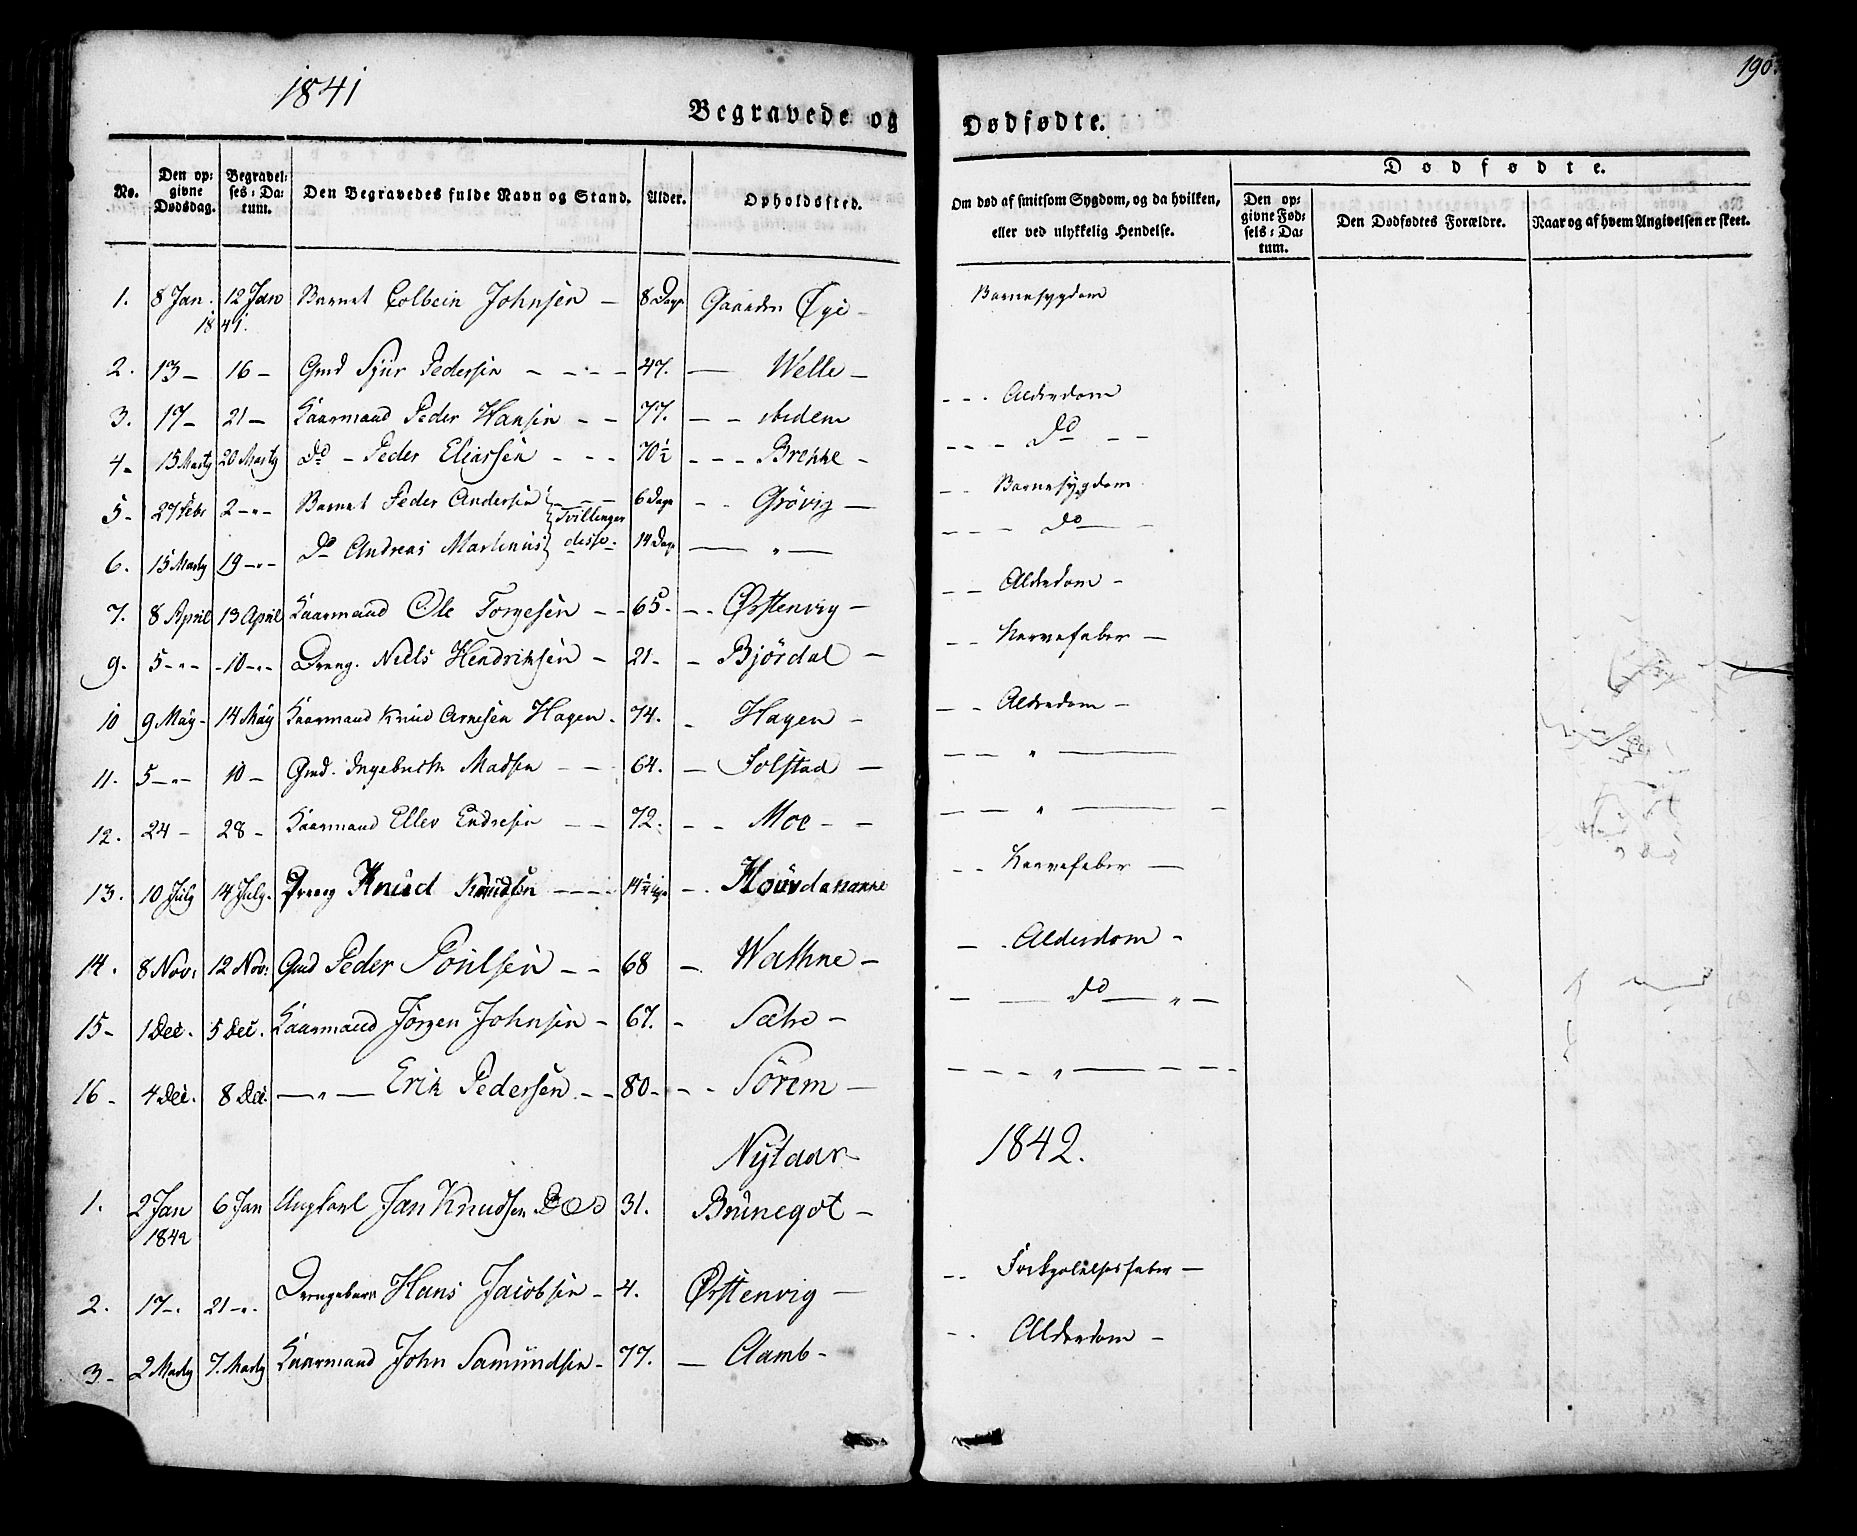 1841
190.
Begravede og Dødfødte.
No. Den opgivne Dødsdag. Begravelses-Datum. Den Begravedes fulde Navn og Stand. Alder. Opholdssted. Om død af smitsom Sygdom, og da hvilken, eller ved ulykkelig Hendelse. Dødfødte. Den opgivne Fødsels-Datum. Den Dødfødtes Forældre. Naar og af hvem Angivelsen er skeet.
1. 8 Jan. 12 Jan 1841. Barnet Colbein Johnsen – 8 Dage Gaarden Øye – Barnesygdom
2. 13 – 16 – Gmd Sjur Pedersen – – – – 47. — Welle –
3. 17 – 21 – Kaarmand Peder Hansen – – 77. – – ibidem – – . Alderdom
4 – 15 Marty 20 Marty Do – Peder Eliassen – – – 70½ – – – Brekke – – – – Do – –
5 – 27 Febr 2 – " – Barnet Peder Andersen – – Tvillinger 6 Dage – – Grövig — – – Barnesygdom
6. 15 Marty 19 – " – Do Andreas Martinus disse – 14 Dage — " — – – – do — –
7. 8 April 13 April Kaarmand Ole Torgesen – – 65. – – Ørstenvig – – – Alderdom –
9. 5 – " – – 10 – " – Dreng. Niels Hendriksen – 21 – – Björdal – – – Nervefeber —
10 9 May – 14 May Kaarmand Knud Arnesen Hagen . 74. – Hagen – – – Alderdom –
11. 5 – " – 10 – Gmd. Ingebrigt Madsen – – – 64. — Folstad — – – " ——
12. 24 – 28 – Kaarmand Ellev Endresen – – 72. – – Moe – – – — " —— –
13. 10 July 14 July. Dreng Knud Knudsen – – – – 14½ – . – – Nervefeber —
14. 8 Nov: 12 Nov: Gmd Peder Poulsen – – 68 – Wathne – — . Alderdom –
15 – 1 Dec. 5 Dec. Kaarmand Jörgen Johnsen – 67. – Sætre – – — do — " –
16 – 4 Dec. 8 Dec. — " — Erik Pedersen . – – 80 – – – Sörem – – – – – " —— – – –
Nytaar – 1842.
1. 2 Jan 1842 6 Jan Ungkarl Jan Knudsen 31. Brünegot –
2. 17 – . 21 – " . Drengebarn Hans Jacobsen – 4. Ørstenvig — – – Forkjølelsesfeber —
3 – 2 Marty 7. Marty Kaarmand John Samundsen – 77. — Aamb – – . Alderdom –